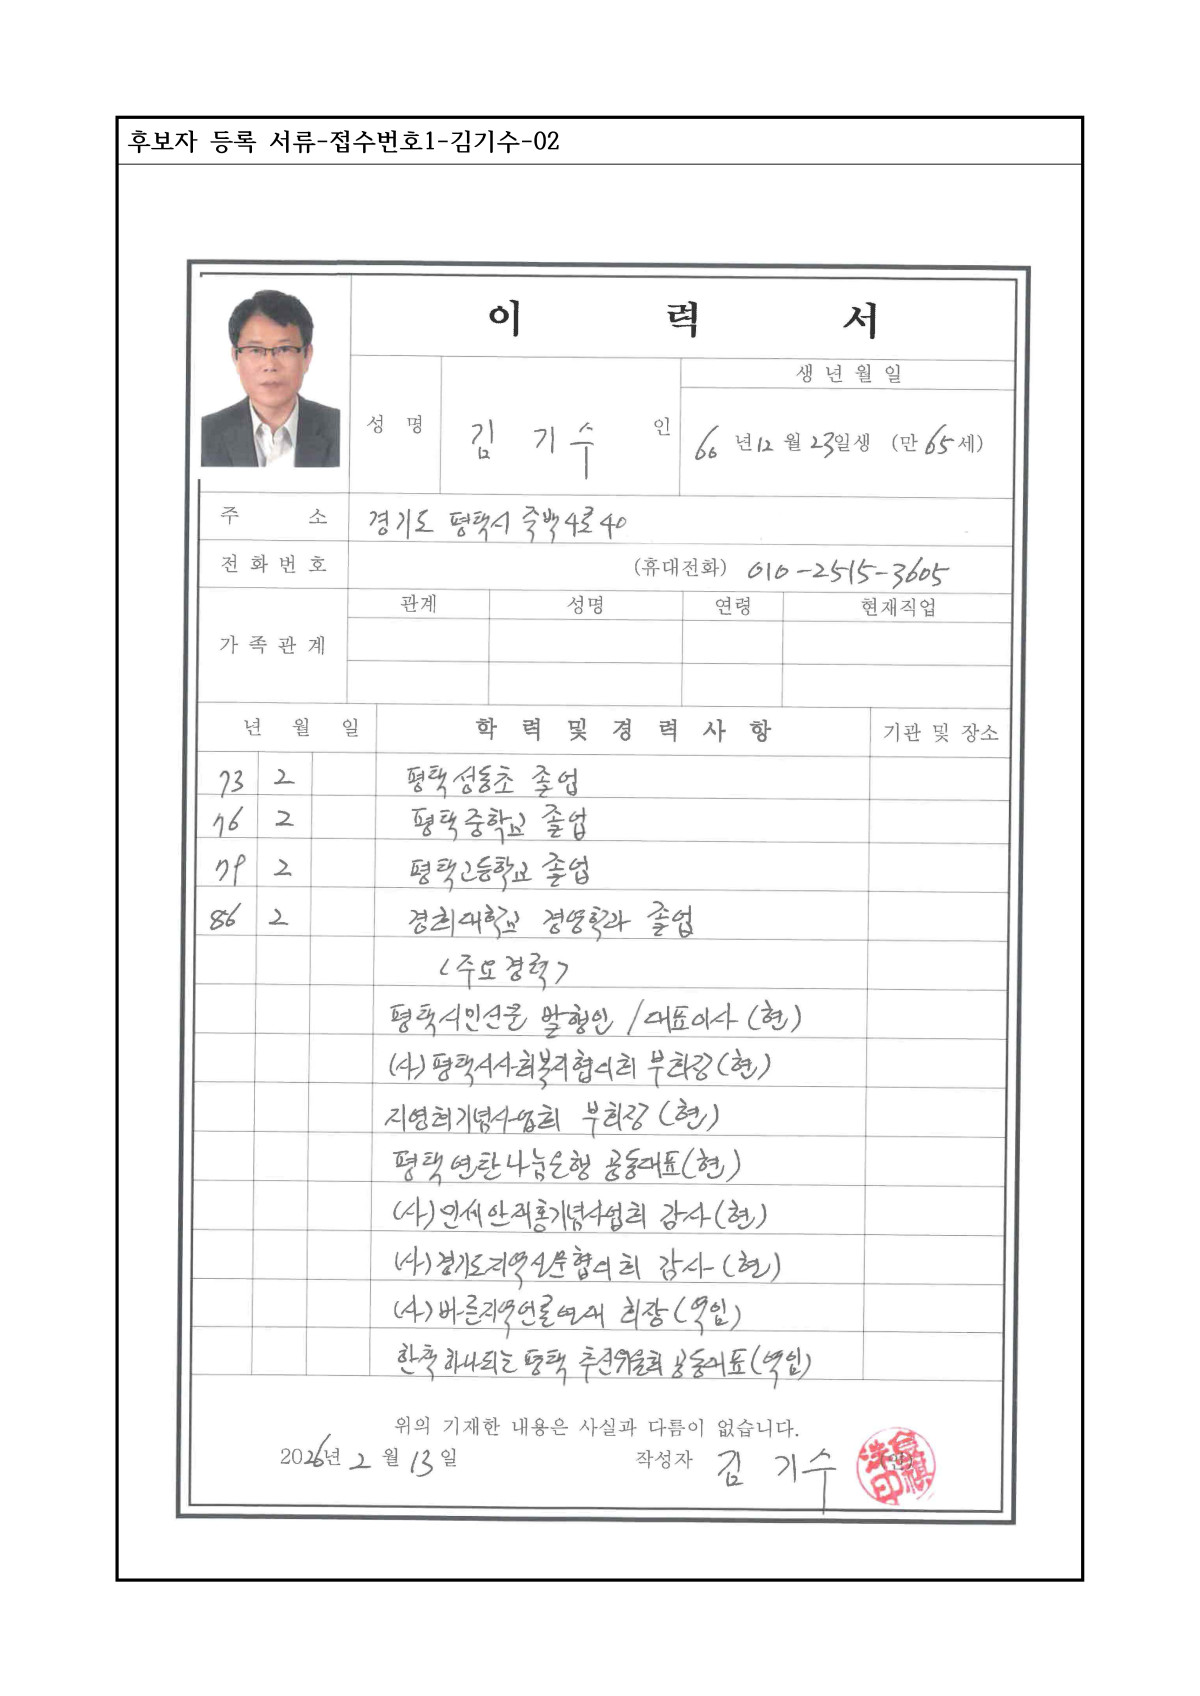 후보자 등록 서류-접수번호1-김기수-02
이 력 서
생 년 월 일
성 명 김 기 수 인
66 년 12 월 23일생 (만 65세)
주 소 경기도 평택시 죽백4로40
전 화 번 호 (휴대전화) 010-2515-3605
가 족 관 계 관계 성명 연령 현재직업
년 월 일 학 력 및 경 력 사 항 기관 및 장소
73 2 평택성동초 졸업
76 2 평택중학교 졸업
79 2 평택고등학교 졸업
86 2 경희대학교 경영학과 졸업
<주요경력>
평택시민신문 발행인 / 대표이사 (현)
(사)평택시사회복지협의회 부회장(현)
지영희기념사업회 부회장 (현)
평택연탄나눔은행 공동대표(현)
(사)민세안재홍기념사업회 감사(현)
(사)경기도지역신문협의회 감사(현)
(사)바른지역언론연대 회장(역임)
한책 하나되는 평택 추진위원회 공동대표(역임)
위의 기재한 내용은 사실과 다름이 없습니다.
2026년 2 월 13 일 작성자 김 기수 (인)